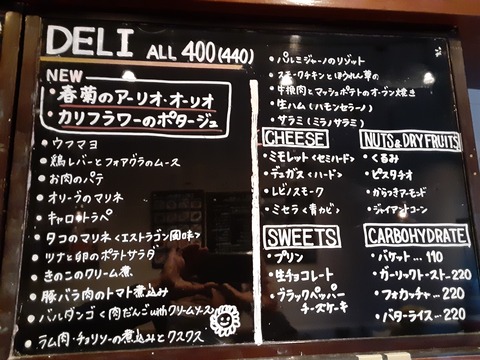 DELI ALL 400(440)
NEW
・春菊のアーリオ・オーリオ
・カリフラワーのポタージュ
・ウフマヨ
・鶏レバーとフォアグラのムース
・お肉のパテ
・オリーヴのマリネ
・キャロットラペ
・タコのマリネ<エストラゴン風味>
・ツナと卵のポテトサラダ
・きのこのクリーム煮
・豚バラ肉のトマト煮込み
・バルダンゴ<肉だんごwithクリームソース>
・ラム肉・チョリソーの煮込みとクスクス
・パルミジャーノのリゾット
・スモークチキンとほうれん草の
・牛挽肉とマッシュポテトのオーブン焼き
・生ハム(ハモンセラーノ)
・サラミ(ミラノサラミ)
CHEESE
・ミモレット<セミハード>
・デュガス<ハード>
・レビノスモーク
・ミセラ<青カビ>
NUTS&DRY FRUITS
・くるみ
・ピスタチオ
・からつきアーモンド
・ジャイアントコーン
SWEETS
・プリン
・生チョコレート
・ブラックペッパー
チーズケーキ
CARBOHYDRATE
・バケット…110
・ガーリックトースト…220
・フォカッチャ…220
・バターライス…220